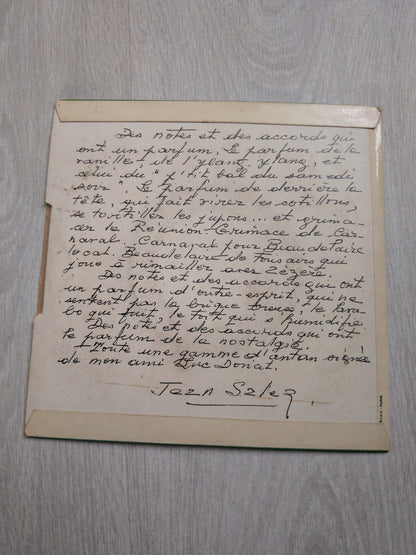 Des notes et des accords qui
ont un parfum. Le parfum de la
vanille, de l'ylang-ylang, et
celui du "p'tit bal du samedi
soir". Le parfum de derrière la
fête, qui fait virer les cotillons,
se tortiller les jupons... et grima-
cer la Réunion-Grimace de Car-
naval. Carnaval pour Baudelaire
local. Baudelaire de foirairs qui
joue à rimailler avec Zézère.
Des notes et des accords qui ont
un parfum d'outre-esprit, qui ne
sentent pas la bique le lava-
bo qui fuit, le toit qui s'humidifie
Des notes et des accords qui ont
le parfum de la nostalgie.
Toute une gamme d'antan signée
de mon ami Luc Donat.
Jean